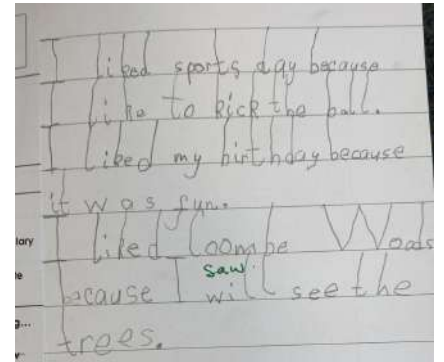 I liked sports day because
I like to kick the ball.
I liked my birthday because
it was fun.
I liked Coombe Woods
saw
because I will see the
trees.
lary
e
g...
y